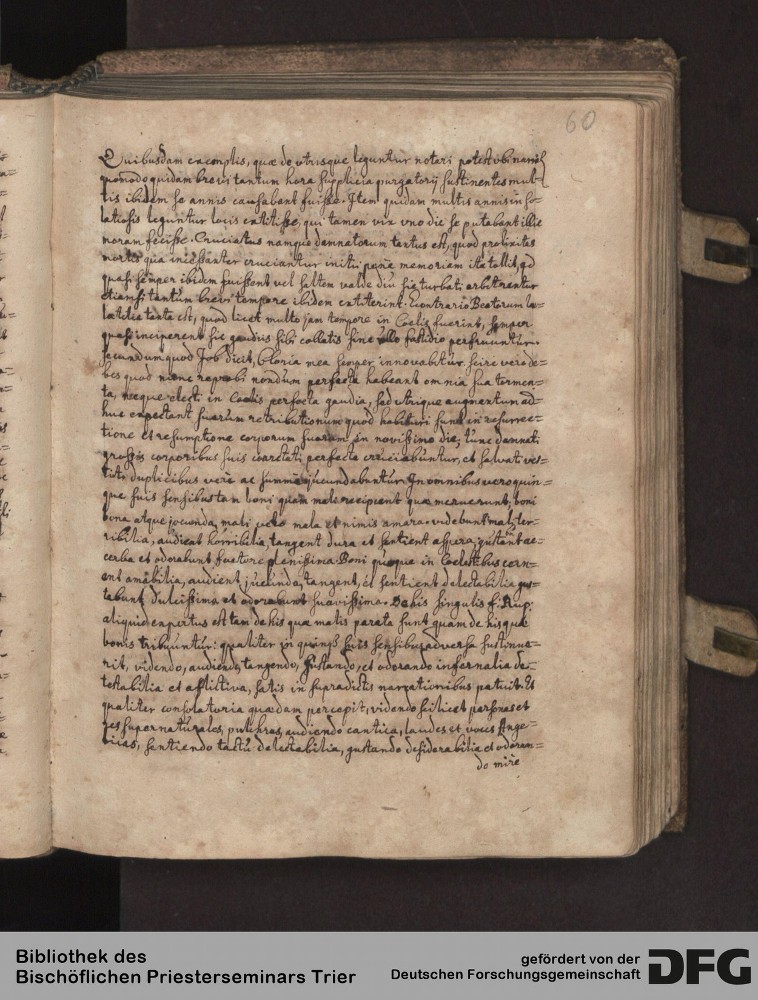 60
Quibusdam exemplis, quæ de utrisque leguntur noteri potest ubi narrat
quomodo quidam brevi tantum hora supplicia purgatorij sustinentes mul-
tis ibidem se annis causabant fuisse. Item quidam multis annis in so-
latiosis leguntur locis extitisse, qui tamen vix uno die se putabant illic
moram fecisse. Cruciatus namque damnatorum tantus est, quod prolixitas
mortis qua incessanter cruciantur initii pene memoriam ita tollit, qd
quasi semper ibidem fuissent vel saltem valde diu sic turbati arbitrentur
etiamsi tantum brevi tempore ibidem extiterint. Econtrario Beatorum læ-
lætitia tanta est, quod licet multo jam tempore in Coelis fuerint, semper
quasi inciperent sic gaudiis sibi collatis sine ullo fastidio perfruuntur.
secundum quod Job dicit, Gloria mea semper innovabitur. scire vero de-
bes quod nunc reprobi nondum perfecta habeant omnia sua tormen=
ta, neque electi in Coelis perfecta gaudia, sed utrique augmentum ad=
huc expectant suarum retributionum quod habituri sunt in resurrec=
tione et resumptione corporum suorum in novissimo die; tunc damnati
grossis corporibus suis coarctati perfecte cruciabuntur, et salvati ves=
titi duplicibus vere ac summe jucundabuntur. In omnibus vero quin=
que suis sensibus tam boni quam mali recipient quæ meruerunt; boni
bona atque jocunda, mali vero mala et nimis amara. videbunt mali ter-
ribilia, audient horribilia, tangent dura et sentient aspera, gustant ac=
cerba et odorabunt foetore plenissima. Boni quoque in Coelestibus cern=
ent amabilia, audient jucunda, tangent, et sentient delectabilia gus=
tabunt dulcissima et odorabunt suavissima. De his singulis f. Rup:
aliquid expertus est tam de his quæ malis parata sunt quam de his quæ
bonis tribuuntur: qualiter in quinq3 suis sensibus adversa sustinue=
rit, videndo, audiendo, tangendo, gustando, et odorando infernalia de=
testabilia et afflictiva, satis in supradictis narrationibus patuit. Et
qualiter consolatoria quædam percepit, videndo scilicet personas et
res supernaturales, pulchras, audiendo cantica, laudes et voces Ange=
licas, sentiendo tactu delectabilia, gustando desiderabilia et odoran=
do mire
Bibliothek des
Bischöflichen Priesterseminars Trier
gefördert von der
Deutschen Forschungsgemeinschaft
DFG